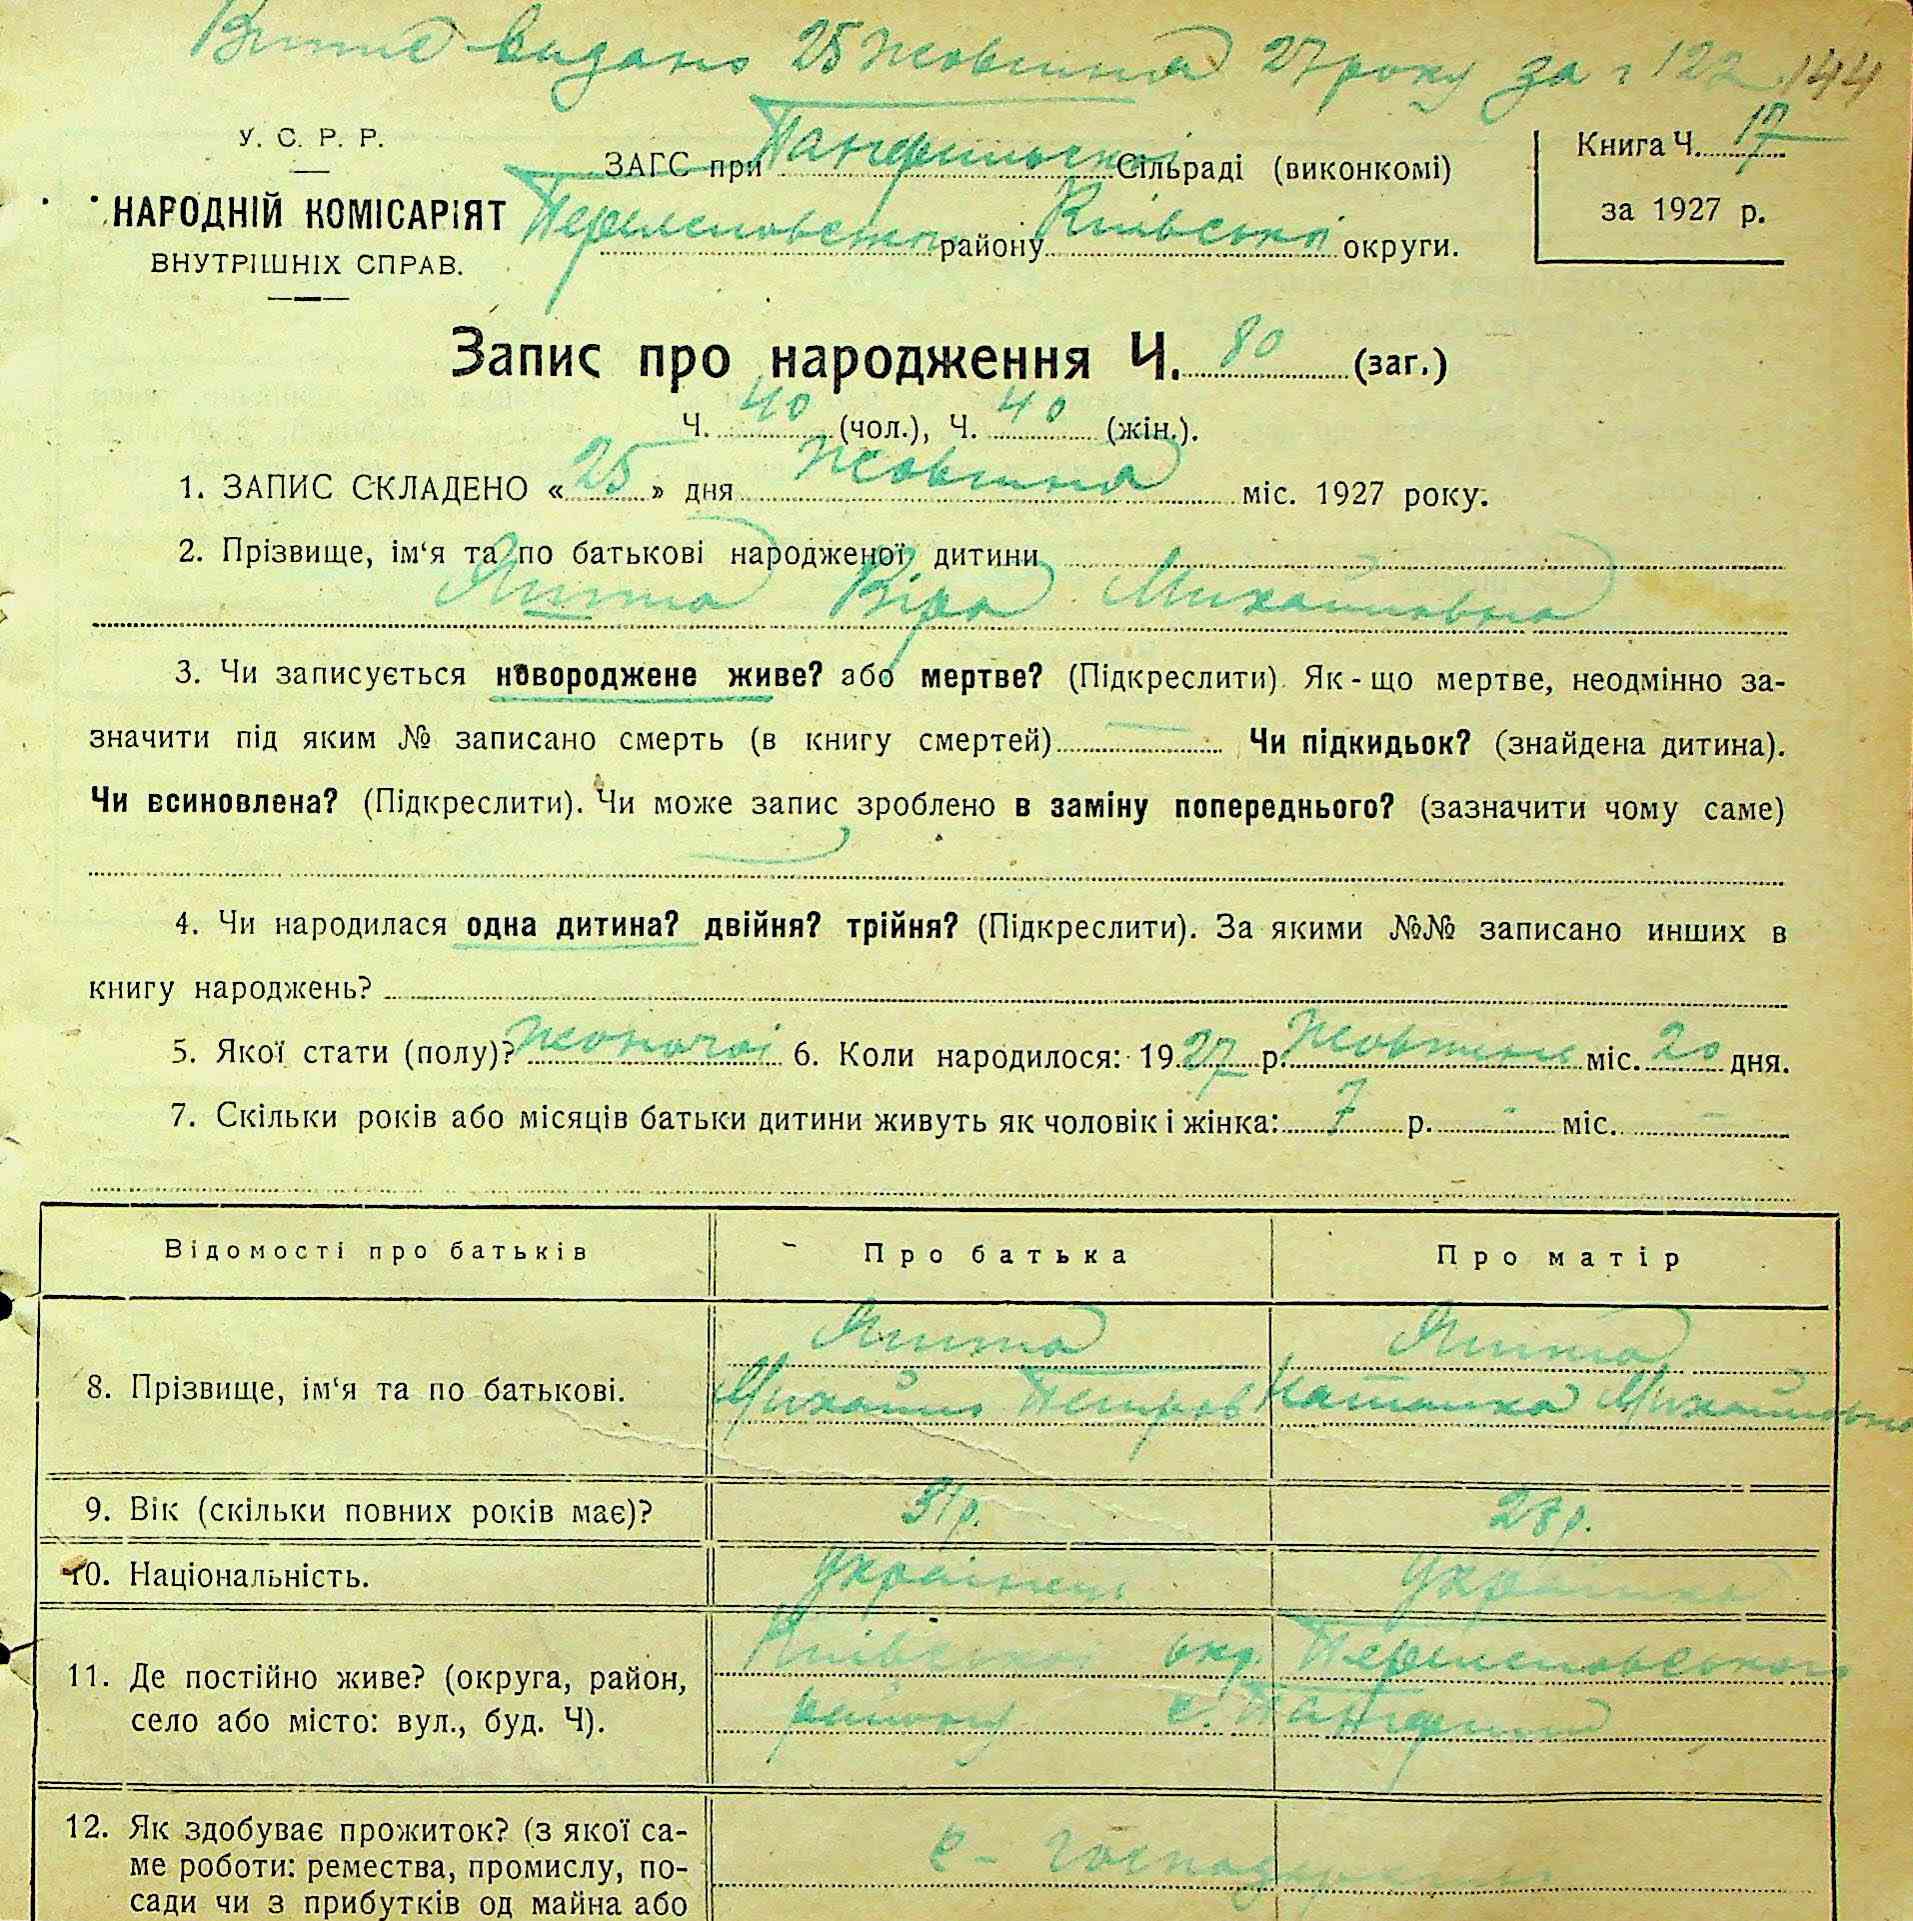 Витяг видано 25 Жовтня 27 року за № 122 144
У. С. Р. Р.
НАРОДНІЙ КОМІСАРІЯТ
ВНУТРІШНІХ СПРАВ.
ЗАГС при Панфильській Сільраді (виконкомі)
району Київської округи.
Книга Ч. 17
за 1927 р.
Запис про народження Ч. 80 (заг.)
Ч. 40 (чол.), Ч. 40 (жін.).
1. ЗАПИС СКЛАДЕНО «25» дня Жовтня міс. 1927 року.
2. Прізвище, ім‘я та по батькові народженої дитини
Віра Михайловна
3. Чи записується новороджене живе? або мертве? (Підкреслити). Як-що мертве, неодмінно за-
значити під яким № записано смерть (в книгу смертей) — Чи підкидьок? (знайдена дитина).
Чи всиновлена? (Підкреслити). Чи може запис зроблено в заміну попереднього? (зазначити чому саме)
4. Чи народилася одна дитина? двійня? трійня? (Підкреслити). За якими №№ записано инших в
книгу народжень?
5. Якої стати (полу)? жіночої 6. Коли народилося: 1927 р. Жовтня міс. 20 дня.
7. Скільки років або місяців батьки дитини живуть як чоловік і жінка: 7 р. - міс. —
Відомості про батьків Про батька Про матір
8. Прізвище, ім‘я та по батькові. Михайло Петров Наталка Михайловна
9. Вік (скільки повних років має)? 31 р. 28 р.
10. Національність. Українець Українка
11. Де постійно живе? (округа, район, Київської окр.
село або місто: вул., буд. Ч). району с. Панфили
12. Як здобуває прожиток? (з якої са-
ме роботи: ремества, промислу, по-
сади чи з прибутків од майна або